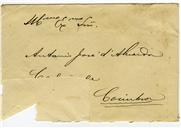 Illmo Exmo Snr.
Antonio José d'Almeida
Coimbra